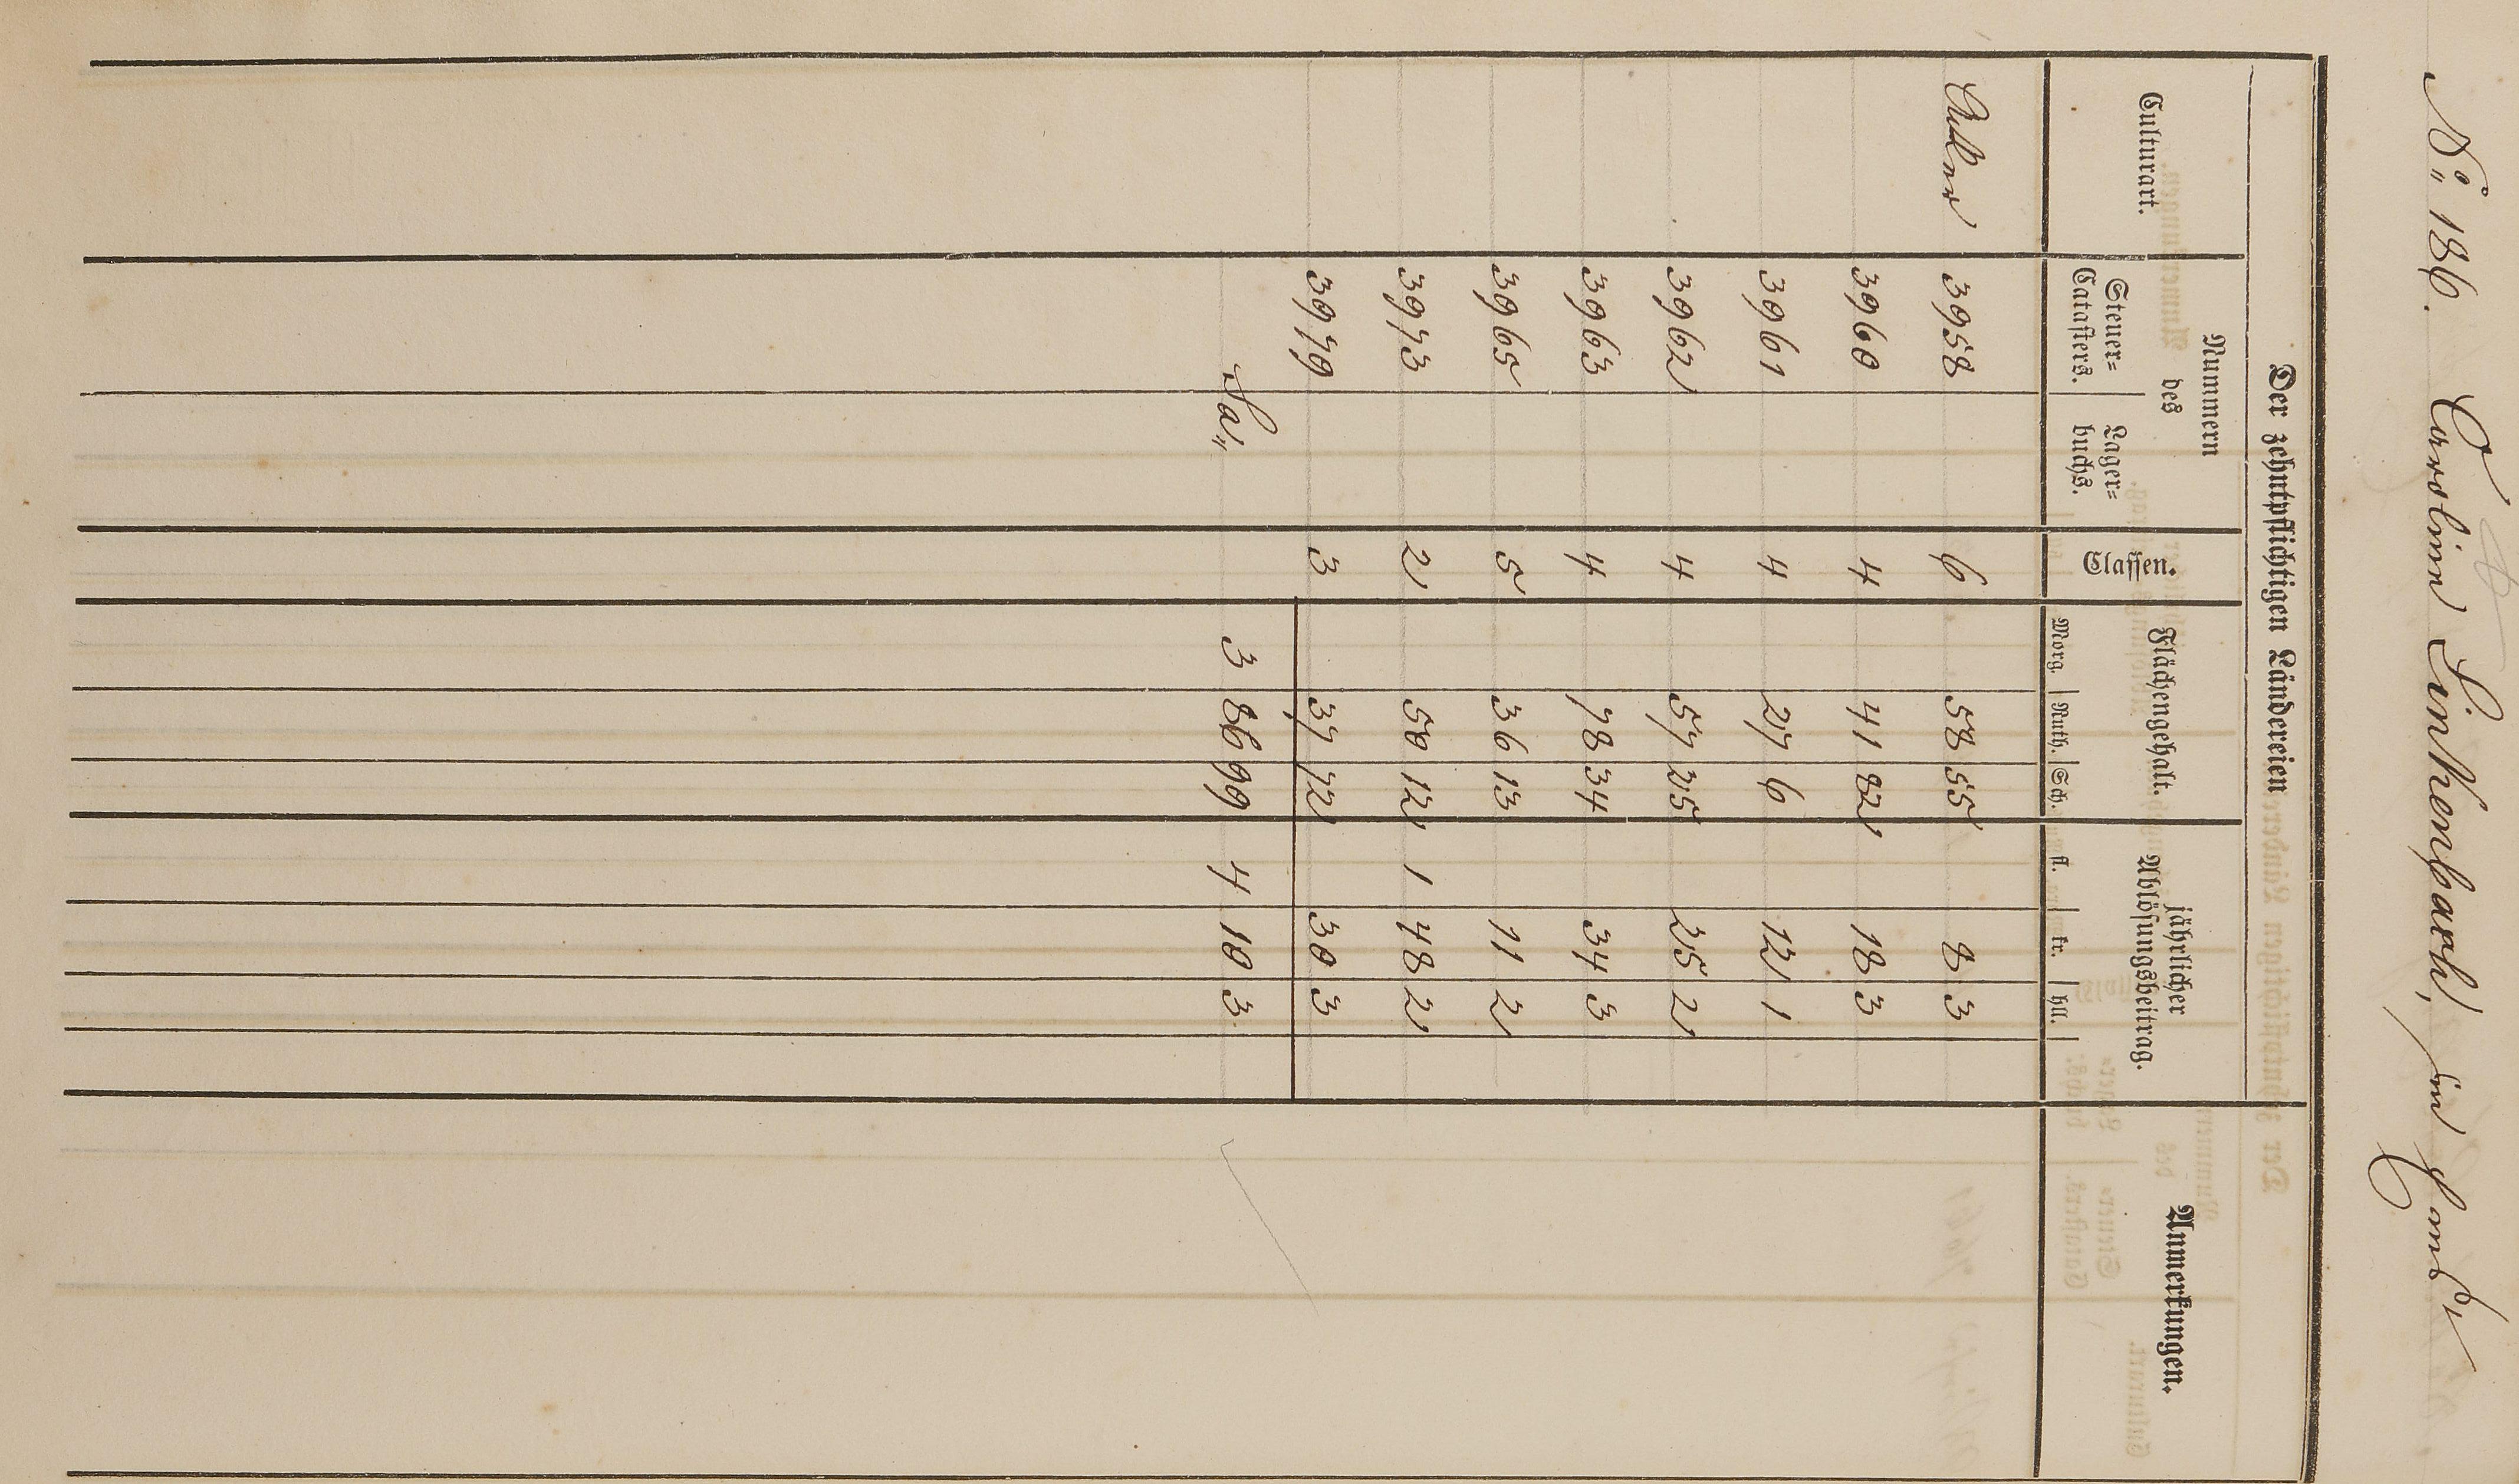 No 186. Caroline Linkenbach, in
Der zehntpflichtigen Ländereien
Anmerkungen.
Culturart.
Nummern
des
Steuer=
Catasters.
Lager=
buchs.
Classen.
Flächengehalt.
Morg. Ruth. Sch.
jährlicher
Ablösungsbeitrag.
fl. kr. hll.
Acker 3958 6 58 55 8 3
3960 4 41 82 18 3
3961 4 27 6 12 1
3962 4 57 25 25 2
3963 4 78 34 34 3
3965 5 36 13 11 2
3973 2 50 12 1 48 2
3979 3 37 72 30 3
Sa. 3 86 99 4 10 3